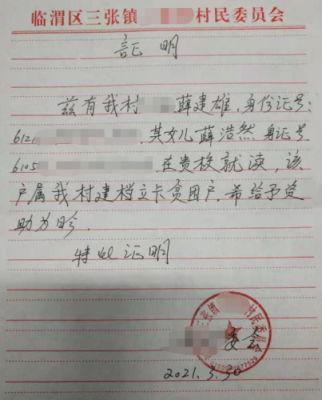 临渭区三张镇 村民委员会
证明
兹有我村 薛建雄,身份证号:
612 其女儿薛浩然 身证号
6105 在贵校就读,该
户属我村建档立卡贫困户,希给予资
助为盼.
特此证明
委会
2021.3.30
三张镇 村民委员会